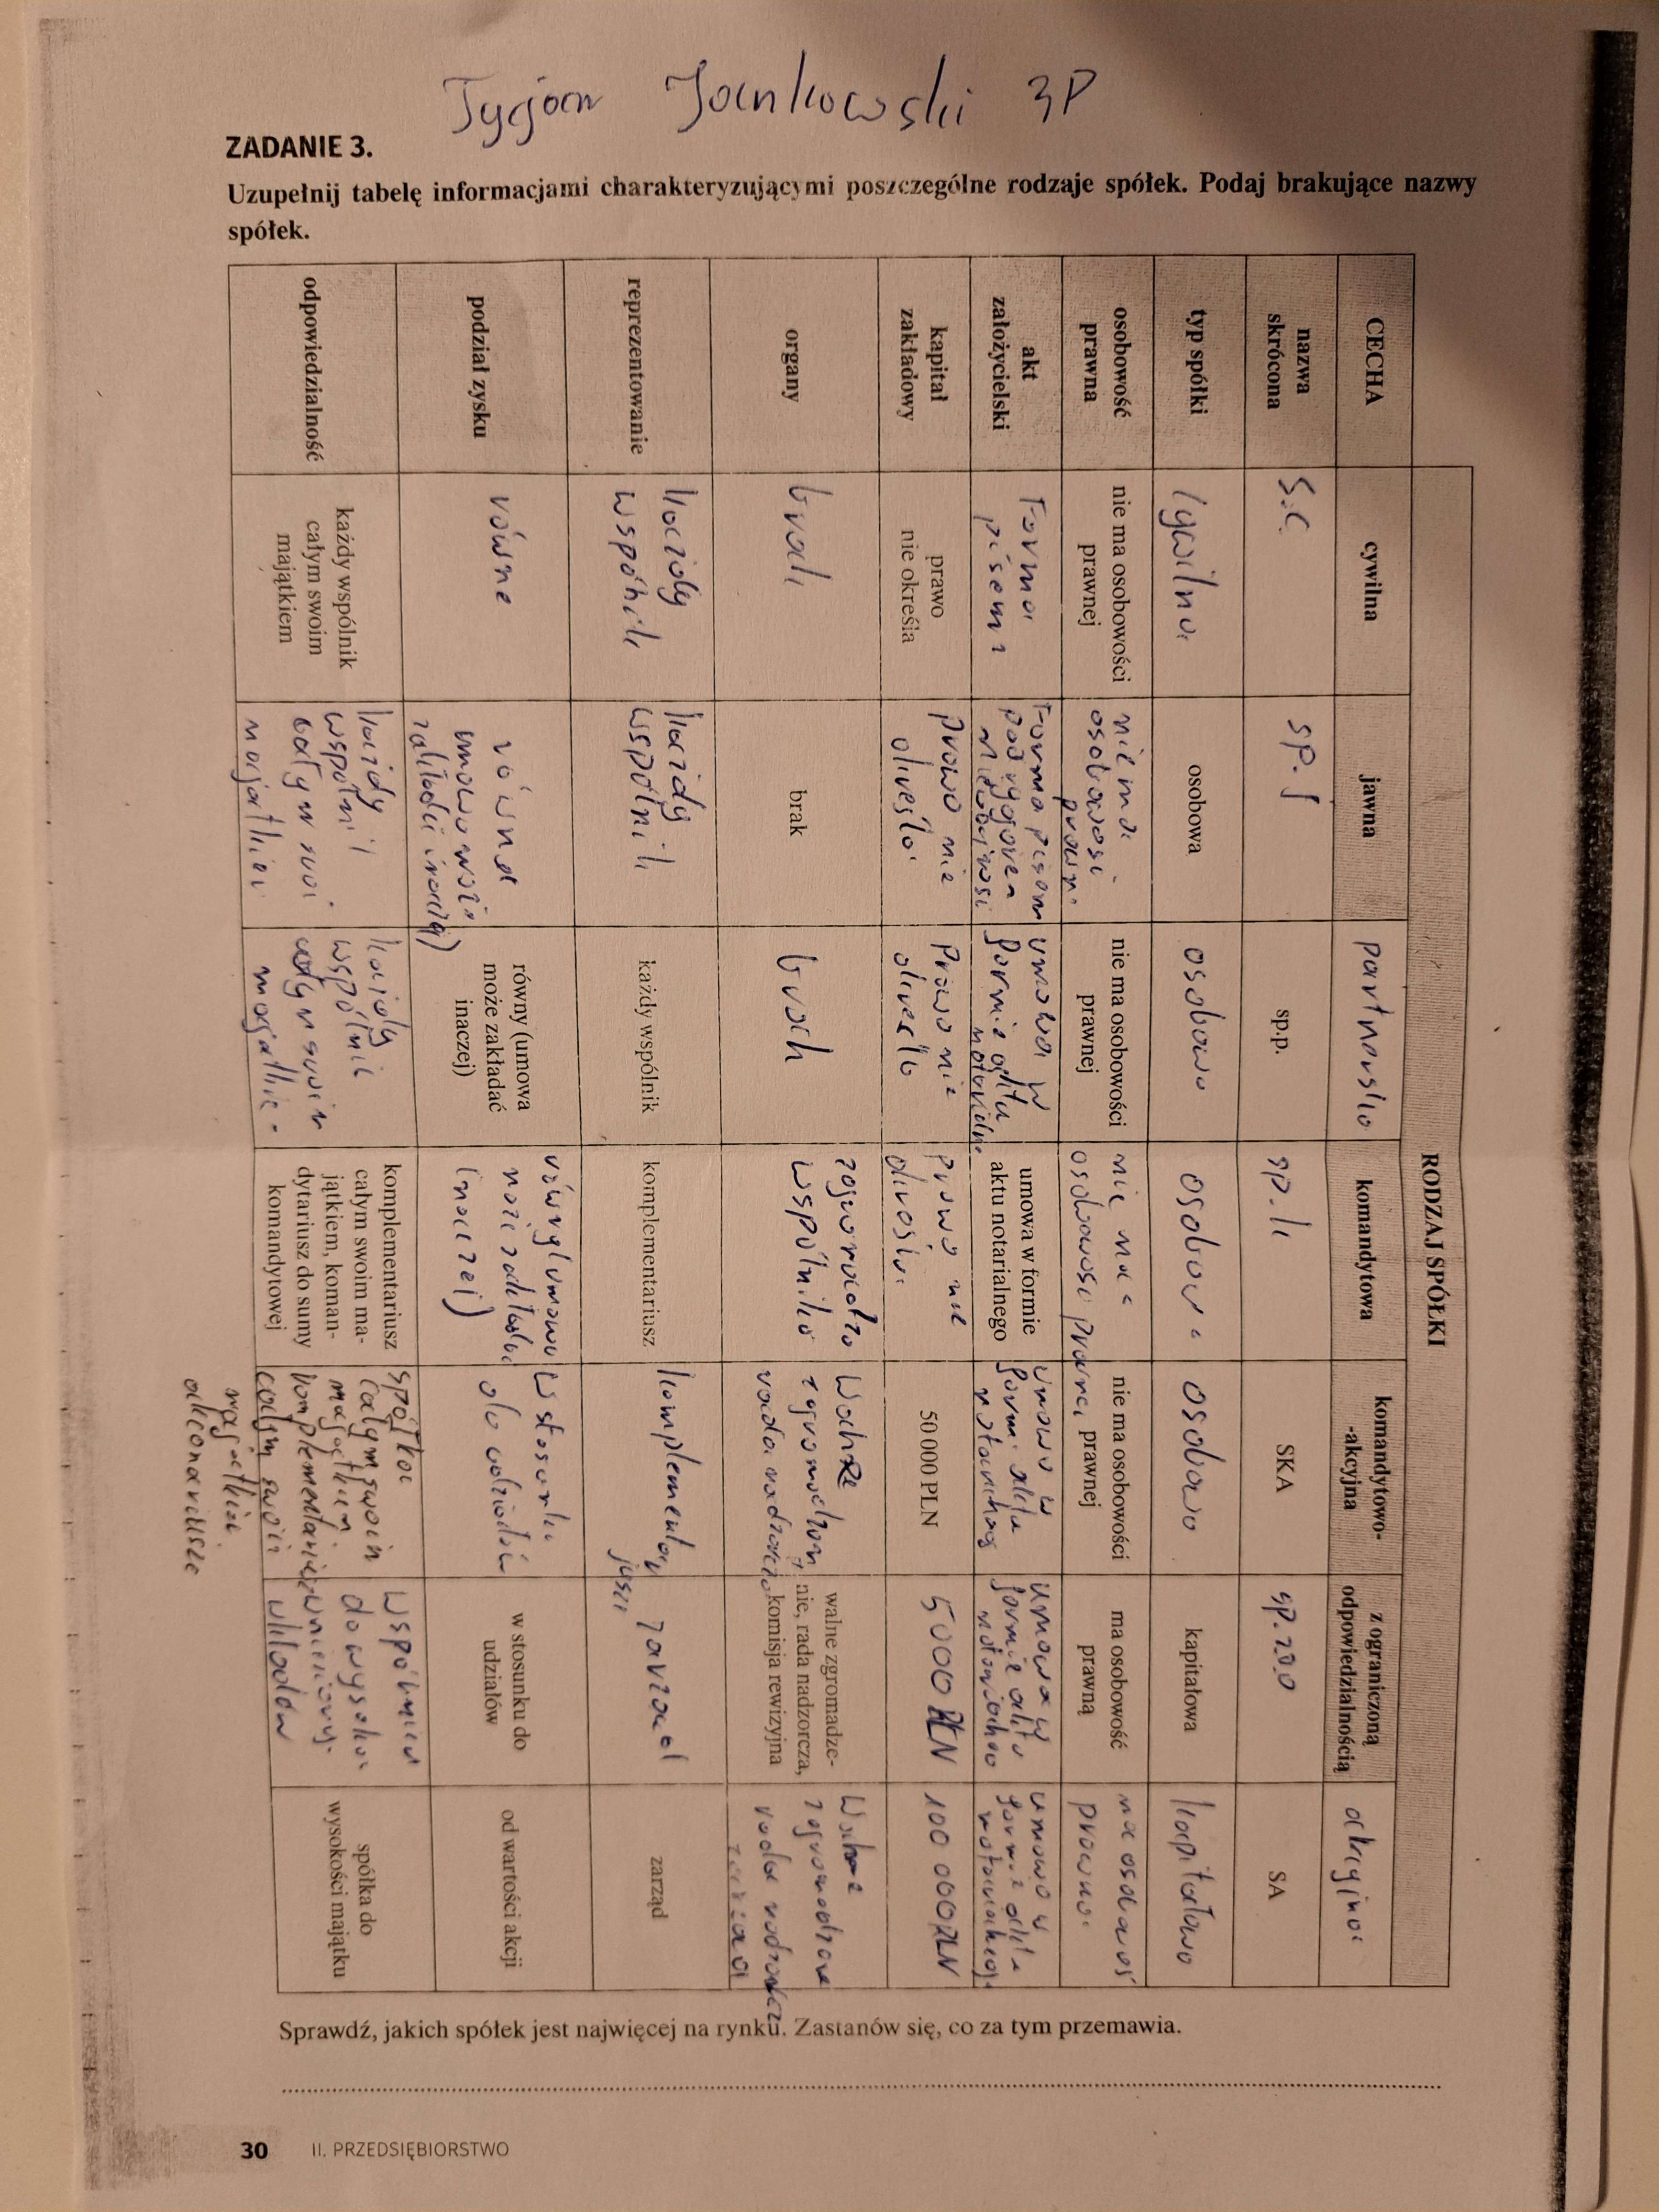 Tycjan Jankowski 3P
ZADANIE 3.
Uzupełnij tabelę informacjami charakteryzującymi poszczególne rodzaje spółek. Podaj brakujące nazwy
spółek.
RODZAJ SPÓŁKI
CECHA
cywilna
jawna
partnerska
komandytowa
komandytowo-
-akcyjna
z ograniczoną
odpowiedzialnością
akcyjna
nazwa
skrócona
S.C.
sp. j
sp.p.
sp. k
SKA
sp. z o.o
SA
typ spółki
cywilna
osobowa
osobowa
osobowa
osobowa
kapitałowa
kapitałowa
osobowość
prawna
nie ma osobowości
prawnej
nie ma
osobowości
nie ma osobowości
prawnej
nie ma
osobowości
nie ma osobowości
prawnej
ma osobowość
prawną
ma
akt
założycielski
Forma
Forma
pod rygorem
umowa w
formie aktu
umowa w formie
aktu notarialnego
umowa w
umowa w
umowa w
kapitał
zakładowy
prawo
nie określa
prawo nie
określa
prawo nie
prawo nie
50 000 PLN
5000 PLN
100 000 PLN
organy
brak
brak
brak
zgromadzenie
Walne
walne zgromadze-
nie, rada nadzorcza,
komisja rewizyjna
Walne
rada
reprezentowanie
każdy
wspólnik
każdy
wspólnik
każdy wspólnik
komplementariusz
zarząd
zarząd
podział zysku
równe
umowa może
zakładać inaczej)
równy (umowa
może zakładać
inaczej)
inaczej)
w stosunku
do udziałów
w stosunku do
udziałów
od wartości akcji
odpowiedzialność
każdy wspólnik
całym swoim
majątkiem
każdy
wspólnik
każdy
wspólnik
całym swoim
komplementariusz
całym swoim ma-
jątkiem, koman-
dytariusz do sumy
komandytowej
spółka
całym swoim
majątkiem
całym swoim
majątkiem
akcionariusze
do wysokości
wkładów
spółka do
wysokości majątku
Sprawdź, jakich spółek jest najwięcej na rynku. Zastanów się, co za tym przemawia.
30 II. PRZEDSIĘBIORSTWO